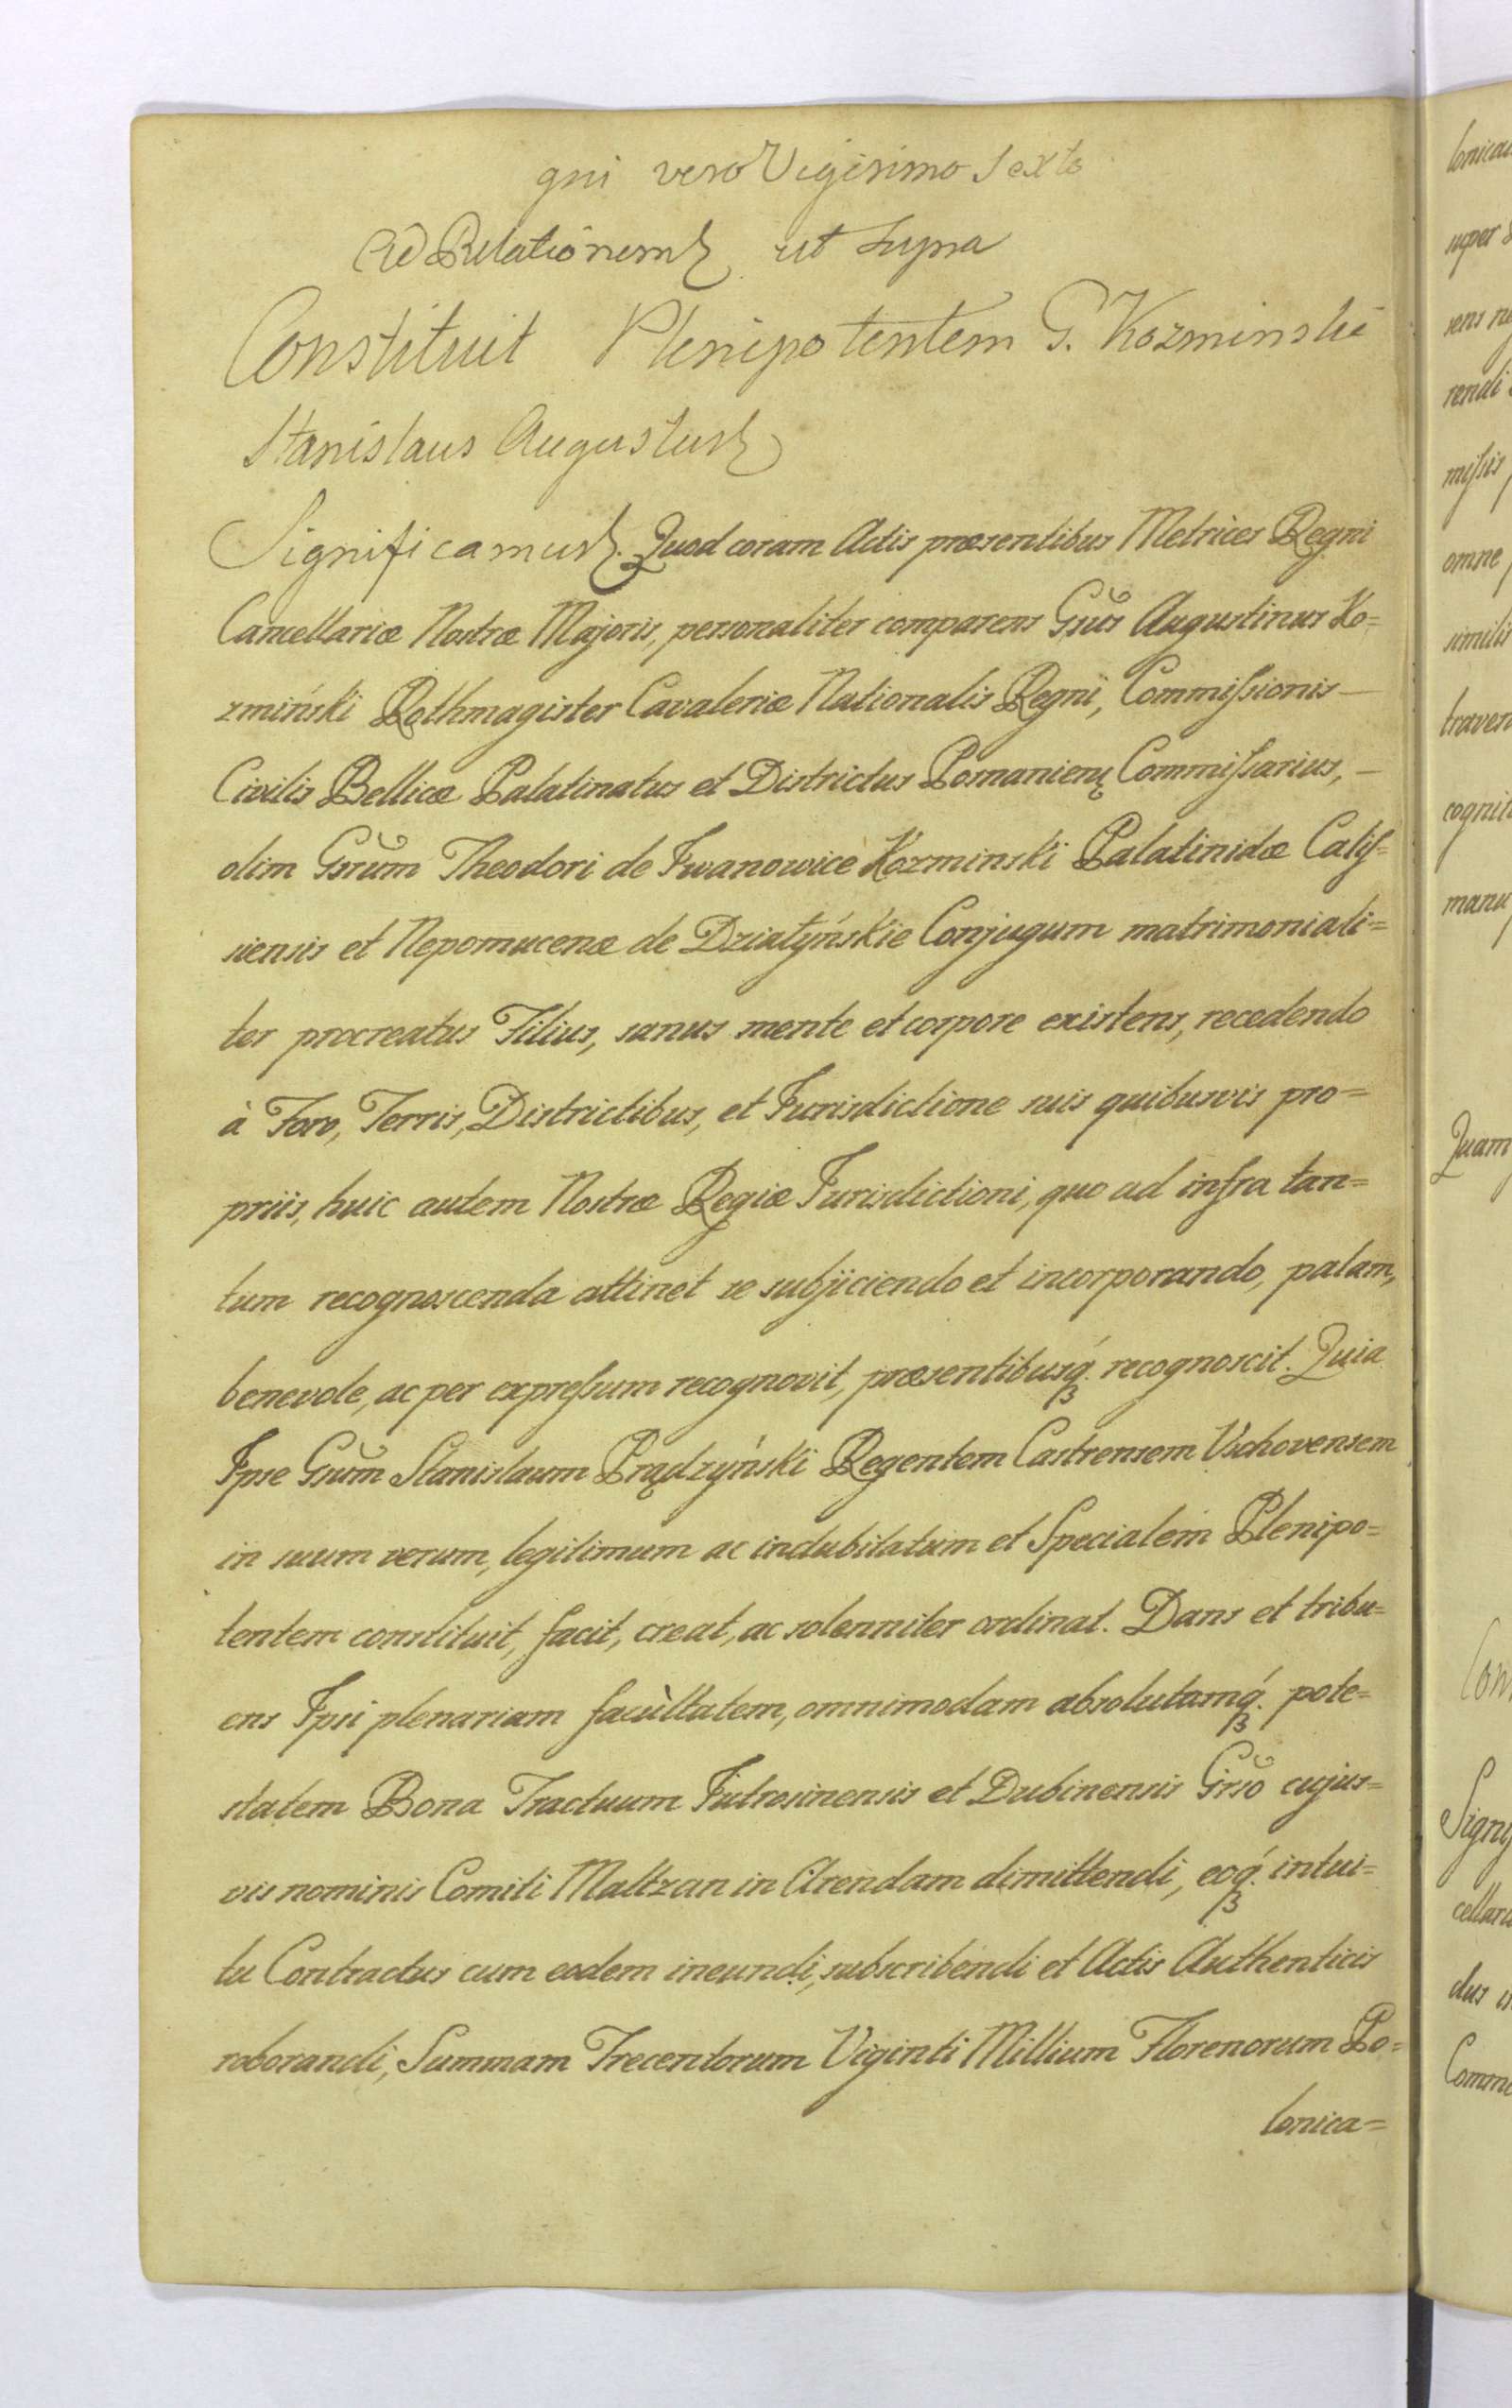 qni vero Vigesimo Sexto
Ad Relationem ut supra
Constituit Plenipotentem G. Kozminski
Stanislaus Augustus
Significamus. Quod coram Actis præsentibus Metrices Regni
Cancellariæ Nostræ Majoris, personaliter comparens Gsus Augustinus Ko=
zmiński Rothmagister Cavaleriæ Nationalis Regni, Commissionis —
Civilis Bellicæ Palatinatus et Districtus Posnanien Commissarius, —
olim Gsrum Theodori de Iwanowice Kozminski Palatinidæ Calis=
siensis et Nepomucenæ de Dziatyńskie Conjugum matrimoniali=
ter procreatus Filius, sanus mente et corpore existens, recedendo
à Foro, Terris, Districtibus, et Jurisdictione suis quibusvis pro=
priis, huic autem Nostræ Regiæ Jurisdictioni, quo ad infra tan=
tum recognoscenda attinet se subjiciendo et incorporando, palam,
benevole, ac per expressum recognovit, præsentibusq. recognoscit. Quia
Ipse Gsum Stanislaum Prądzyński Regentem Castrensem Vschovensem
in suum verum, legitimum ac indubitatum et Specialem Plenipo=
tentem constituit, facit, creat, ac solenniter ordinat. Dans et tribu=
ens Ipsi plenariam facùltatem, omnimodam absolutamq. pote=
statem Bona Tractuum Jutrosinensis et Dubinensis Grso cujus=
vis nominis Comiti Maltzan in Arendam dimittendi, eoq. intui=
tu Contractus cum eodem ineundi, subscribendi et Actis Authenticis
roborandi, Summam Trecentorum Viginti Millium Florenorum Po=
lonica=
lonica
super
sens
rendi
missis
omne
simili
cognit
manu
Quam
Con
Sign
cellari
dus
Comm